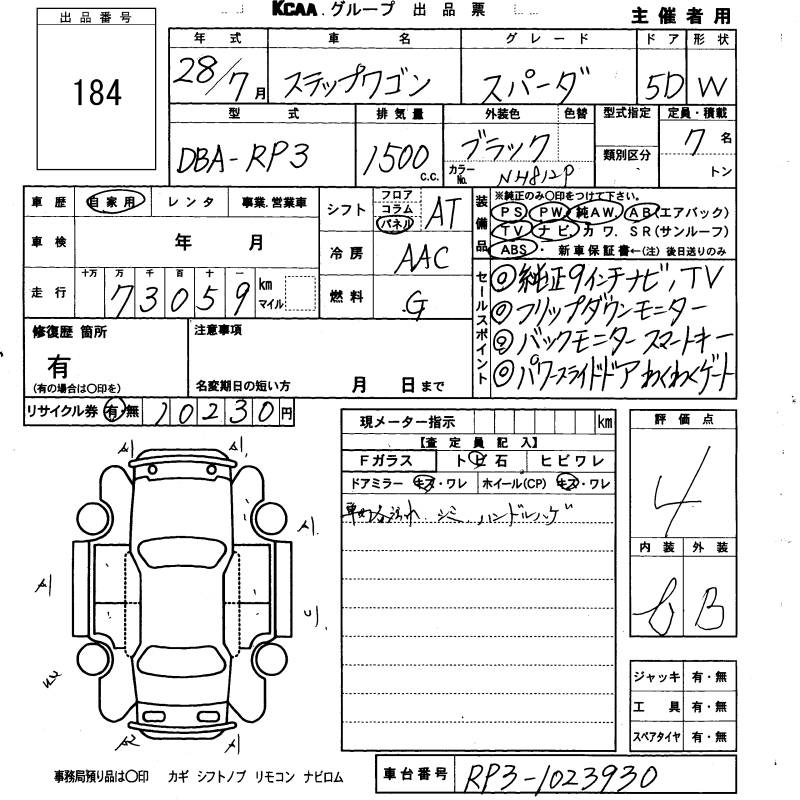 KCAA.グループ 出品票
主催者用
出品番号
184
年式 車名 グレード ドア 形状
28/7月 ステップワゴン スパーダ 5D W
型式 排気量 外装色 色替 型式指定 定員・積載
DBA-RP3 1500c.c. ブラック 7名
カラーNo. NH812P 類別区分 トン
車歴 自家用 レンタ 事業.営業車
シフト フロア コラム パネル AT
装備品
※純正のみ○印をつけて下さい。
PS PW 純AW. AB(エアバック)
TV ナビ. カワ. SR(サンルーフ)
ABS ・ 新車保証書←(注) 後日送りのみ
車検 年 月
冷房 AAC
走行 十万 万 千 百 十 一
73059 km マイル
燃料 G
セールスポイント
◎純正9インチナビ,TV
◎フリップダウンモニター
◎バックモニター スマートキー
◎パワースライドドア わくわくゲート
修復歴 箇所
有
(有の場合は○印を)
注意事項
名変期日の短い方 月 日まで
リサイクル券 有・無 10230円
現メーター指示 km
【査定員記入】
Fガラス トビ石 ヒビワレ
ドアミラー キズ・ワレ ホイール(CP) キズ・ワレ
シミ ハンドルハゲ
評価点
4
内装 外装
B
A1 A1
A1
A1
A2 A1
ジャッキ 有・無
工具 有・無
スペアタイヤ 有・無
事務局預り品は○印 カギ シフトノブ リモコン ナビロム
車台番号 RP3-1023930